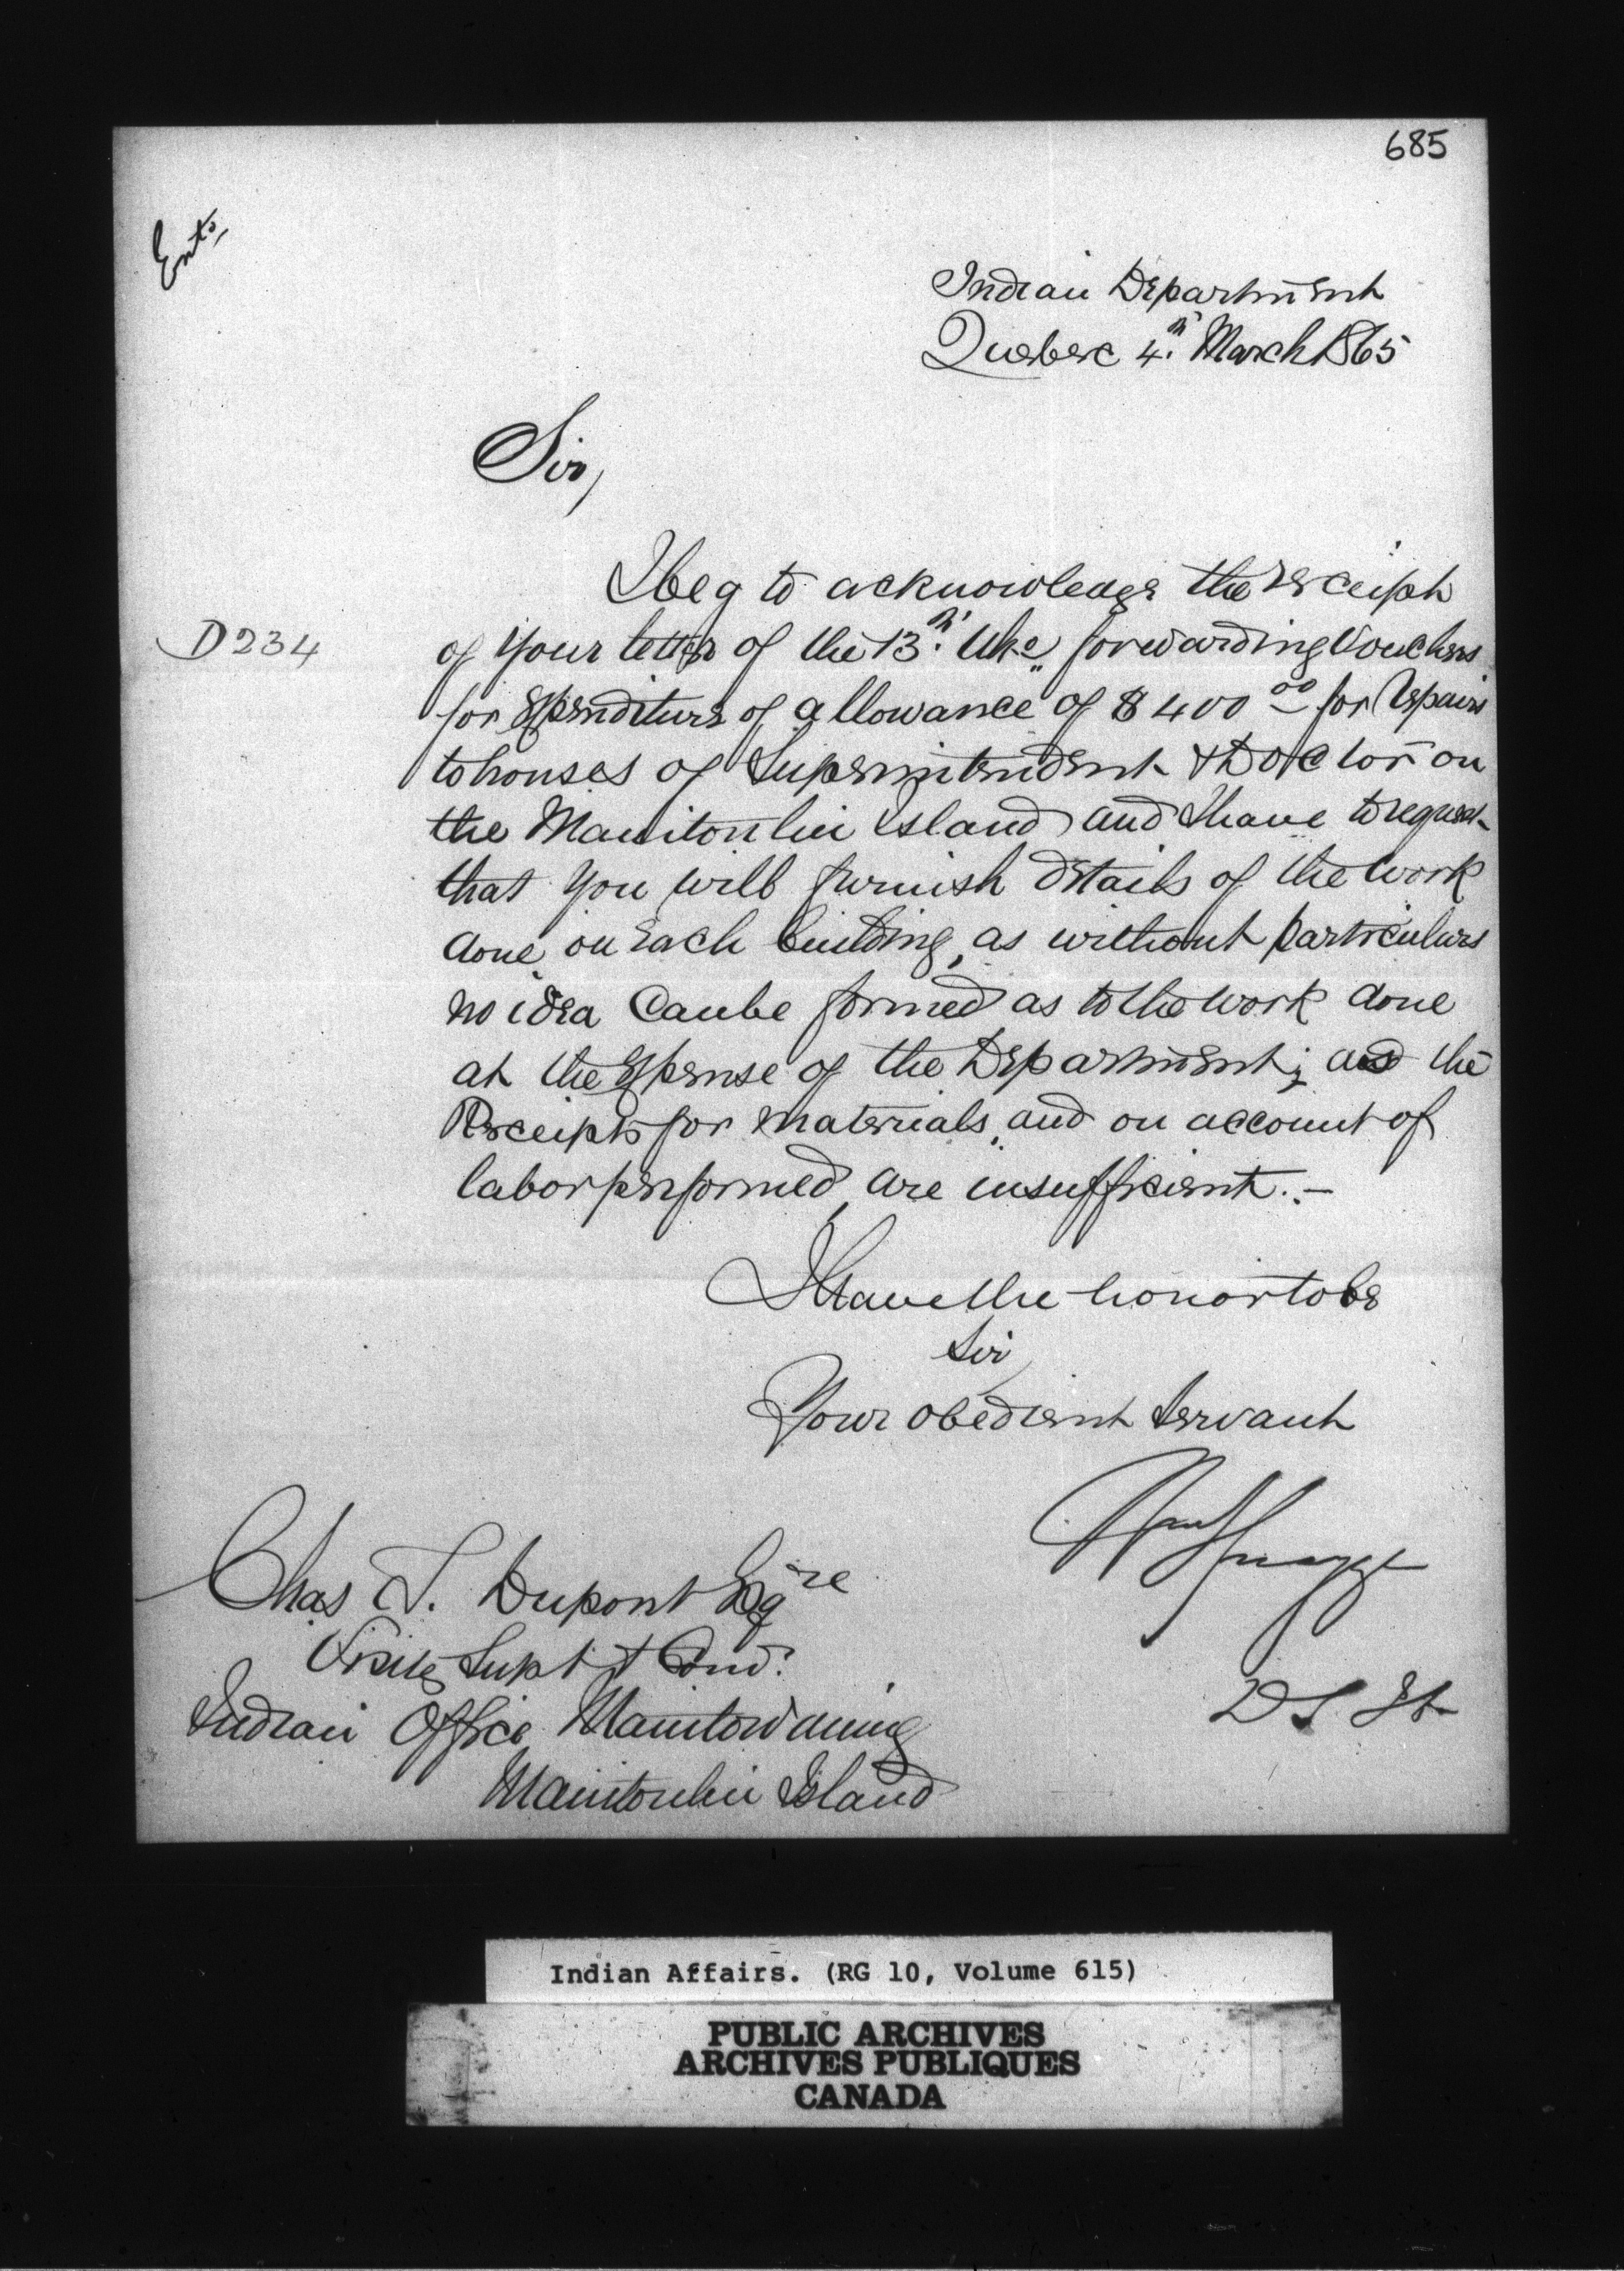 685
Ent^d,
Indian Department
Quebec 4.th March 1865
Sir,
I beg to acknowledge the receipt
D234
of your letter of the 13.th Ulto forwarding Vouchers
for Expenditure of allowance of $400 00 for repairs
to houses of Superintendent & Doctor on
the Manitoulin Island and I have to request
that you will furnish details of the work
done on each building, as without particulars
no idea can be formed as to the work done
at the Expense of the Department; and the
Receipts for materials, and on account of
labor performed, are insufficient.. —
I have the honor to be
Sir
Your obedient Servant
Chas T. Dupont Esqre
Visitg Supt & Com.
Indian Office Manitowaning
Manitoulin Island
Indian Affairs. (RG 10, Volume 615)
PUBLIC ARCHIVES
ARCHIVES PUBLIQUES
CANADA